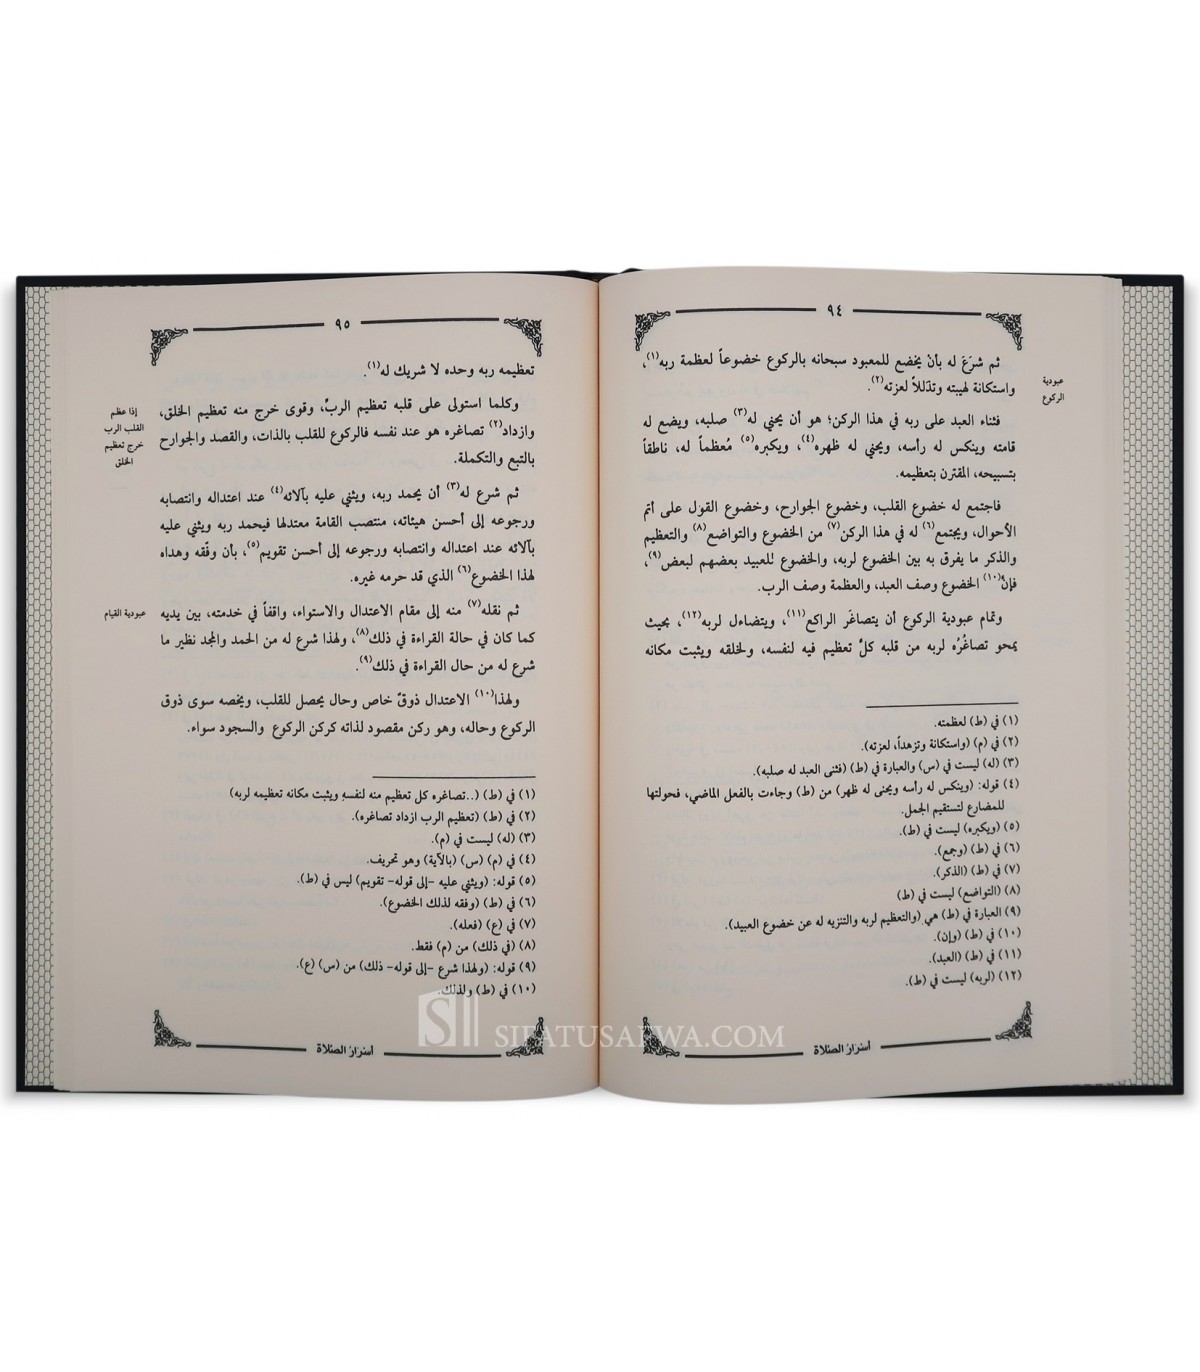 ٩٤
ثم شرَعَ له بأنْ يخضع للمعبود سبحانه بالركوع خضوعاً لعظمة ربه(١)،
واستكانة لهيبته وتذللاً لعزته(٢).
عبودية
الركوع
فثناء العبد على ربه في هذا الركن؛ هو أن يحني له(٣) صلبه، ويضع له
قامته وينكس له رأسه، ويحني له ظهره(٤)، ويكبره(٥) مُعظماً له، ناطقاً
بتسبيحه، المقترن بتعظيمه.
فاجتمع له خضوع القلب، وخضوع الجوارح، وخضوع القول على أتم
الأحوال، ويجتمع(٦) له في هذا الركن(٧) من الخضوع والتواضع(٨) والتعظيم
والذكر ما يفرق به بين الخضوع لربه، والخضوع للعبيد بعضهم لبعض(٩)،
فإنَّ(١٠) الخضوع وصف العبد، والعظمة وصف الرب.
وتمام عبودية الركوع أن يتصاغَر الراكع(١١)، ويتضاءل لربه(١٢)، بحيث
يمحو تصاغُرُه لربه من قلبه كلَّ تعظيم فيه لنفسه، ولخلقه ويثبت مكانه
(١) في (ط) لعظمته.
(٢) في (م) (واستكانة وتزهداً، لعزته).
(٣) (له) ليست في (س) والعبارة في (ط) (فثنى العبد له صلبه).
(٤) قوله: (وينكس له رأسه ويحنى له ظهر) من (ط) وجاءت بالفعل الماضي، فحولتها
للمضارع لتستقيم الجمل.
(٥) (ويكبره) ليست في (ط).
(٦) في (ط) (وجمع).
(٧) في (ط) (الذكر).
(٨) (التواضع) ليست في (ط)
(٩) العبارة في (ط) هي (والتعظيم لربه والتنزيه له عن خضوع العبيد).
(١٠) في (ط) (وإن).
(١١) في (ط) (العبد).
(١٢) (لربه) ليست في (ط).
أسرار الصلاة
٩٥
تعظيمه ربه وحده لا شريك له(١).
وكلما استولى على قلبه تعظيم الربِّ، وقوى خرج منه تعظيم الخلق،
وازداد(٢) تصاغره هو عند نفسه فالركوع للقلب بالذات، والقصد والجوارح
بالتبع والتكملة.
إذا عظم
القلب الرب
خرج تعظيم
الخلق
ثم شرع له(٣) أن يحمد ربه، ويثني عليه بآلائه(٤) عند اعتداله وانتصابه
ورجوعه إلى أحسن هيئاته، منتصب القامة معتدلها فيحمد ربه ويثني عليه
بآلائه عند اعتداله وانتصابه ورجوعه إلى أحسن تقويم(٥)، بأن وفّقه وهداه
لهذا الخضوع(٦) الذي قد حرمه غيره.
ثم نقله(٧) منه إلى مقام الاعتدال والاستواء، واقفاً في خدمته، بين يديه
كما كان في حالة القراءة في ذلك(٨)، ولهذا شرع له من الحمد والمجد نظير ما
شرع له من حال القراءة في ذلك(٩).
عبودية القيام
ولهذا(١٠) الاعتدال ذوقٌ خاص وحال يحصل للقلب، ويخصه سوى ذوق
الركوع وحاله، وهو ركن مقصود لذاته كركن الركوع والسجود سواء.
(١) في (ط) (..تصاغره كل تعظيم منه لنفسه ويثبت مكانه تعظيمه لربه)
(٢) في (ط) (تعظيم الرب ازداد تصاغره).
(٣) (له) ليست في (م).
(٤) في (م) (س) (بالآية) وهو تحريف.
(٥) قوله: (ويثني عليه -إلى قوله- تقويم) ليس في (ط).
(٦) في (ط) (وفقه لذلك الخضوع).
(٧) في (ع) (فعله).
(٨) (في ذلك) من (م) فقط.
(٩) قوله: (ولهذا شرع -إلى قوله- ذلك) من (س) (ع).
(١٠) في (ط) ولذلك.
أسرار الصلاة
SIFATUSAFWA.COM